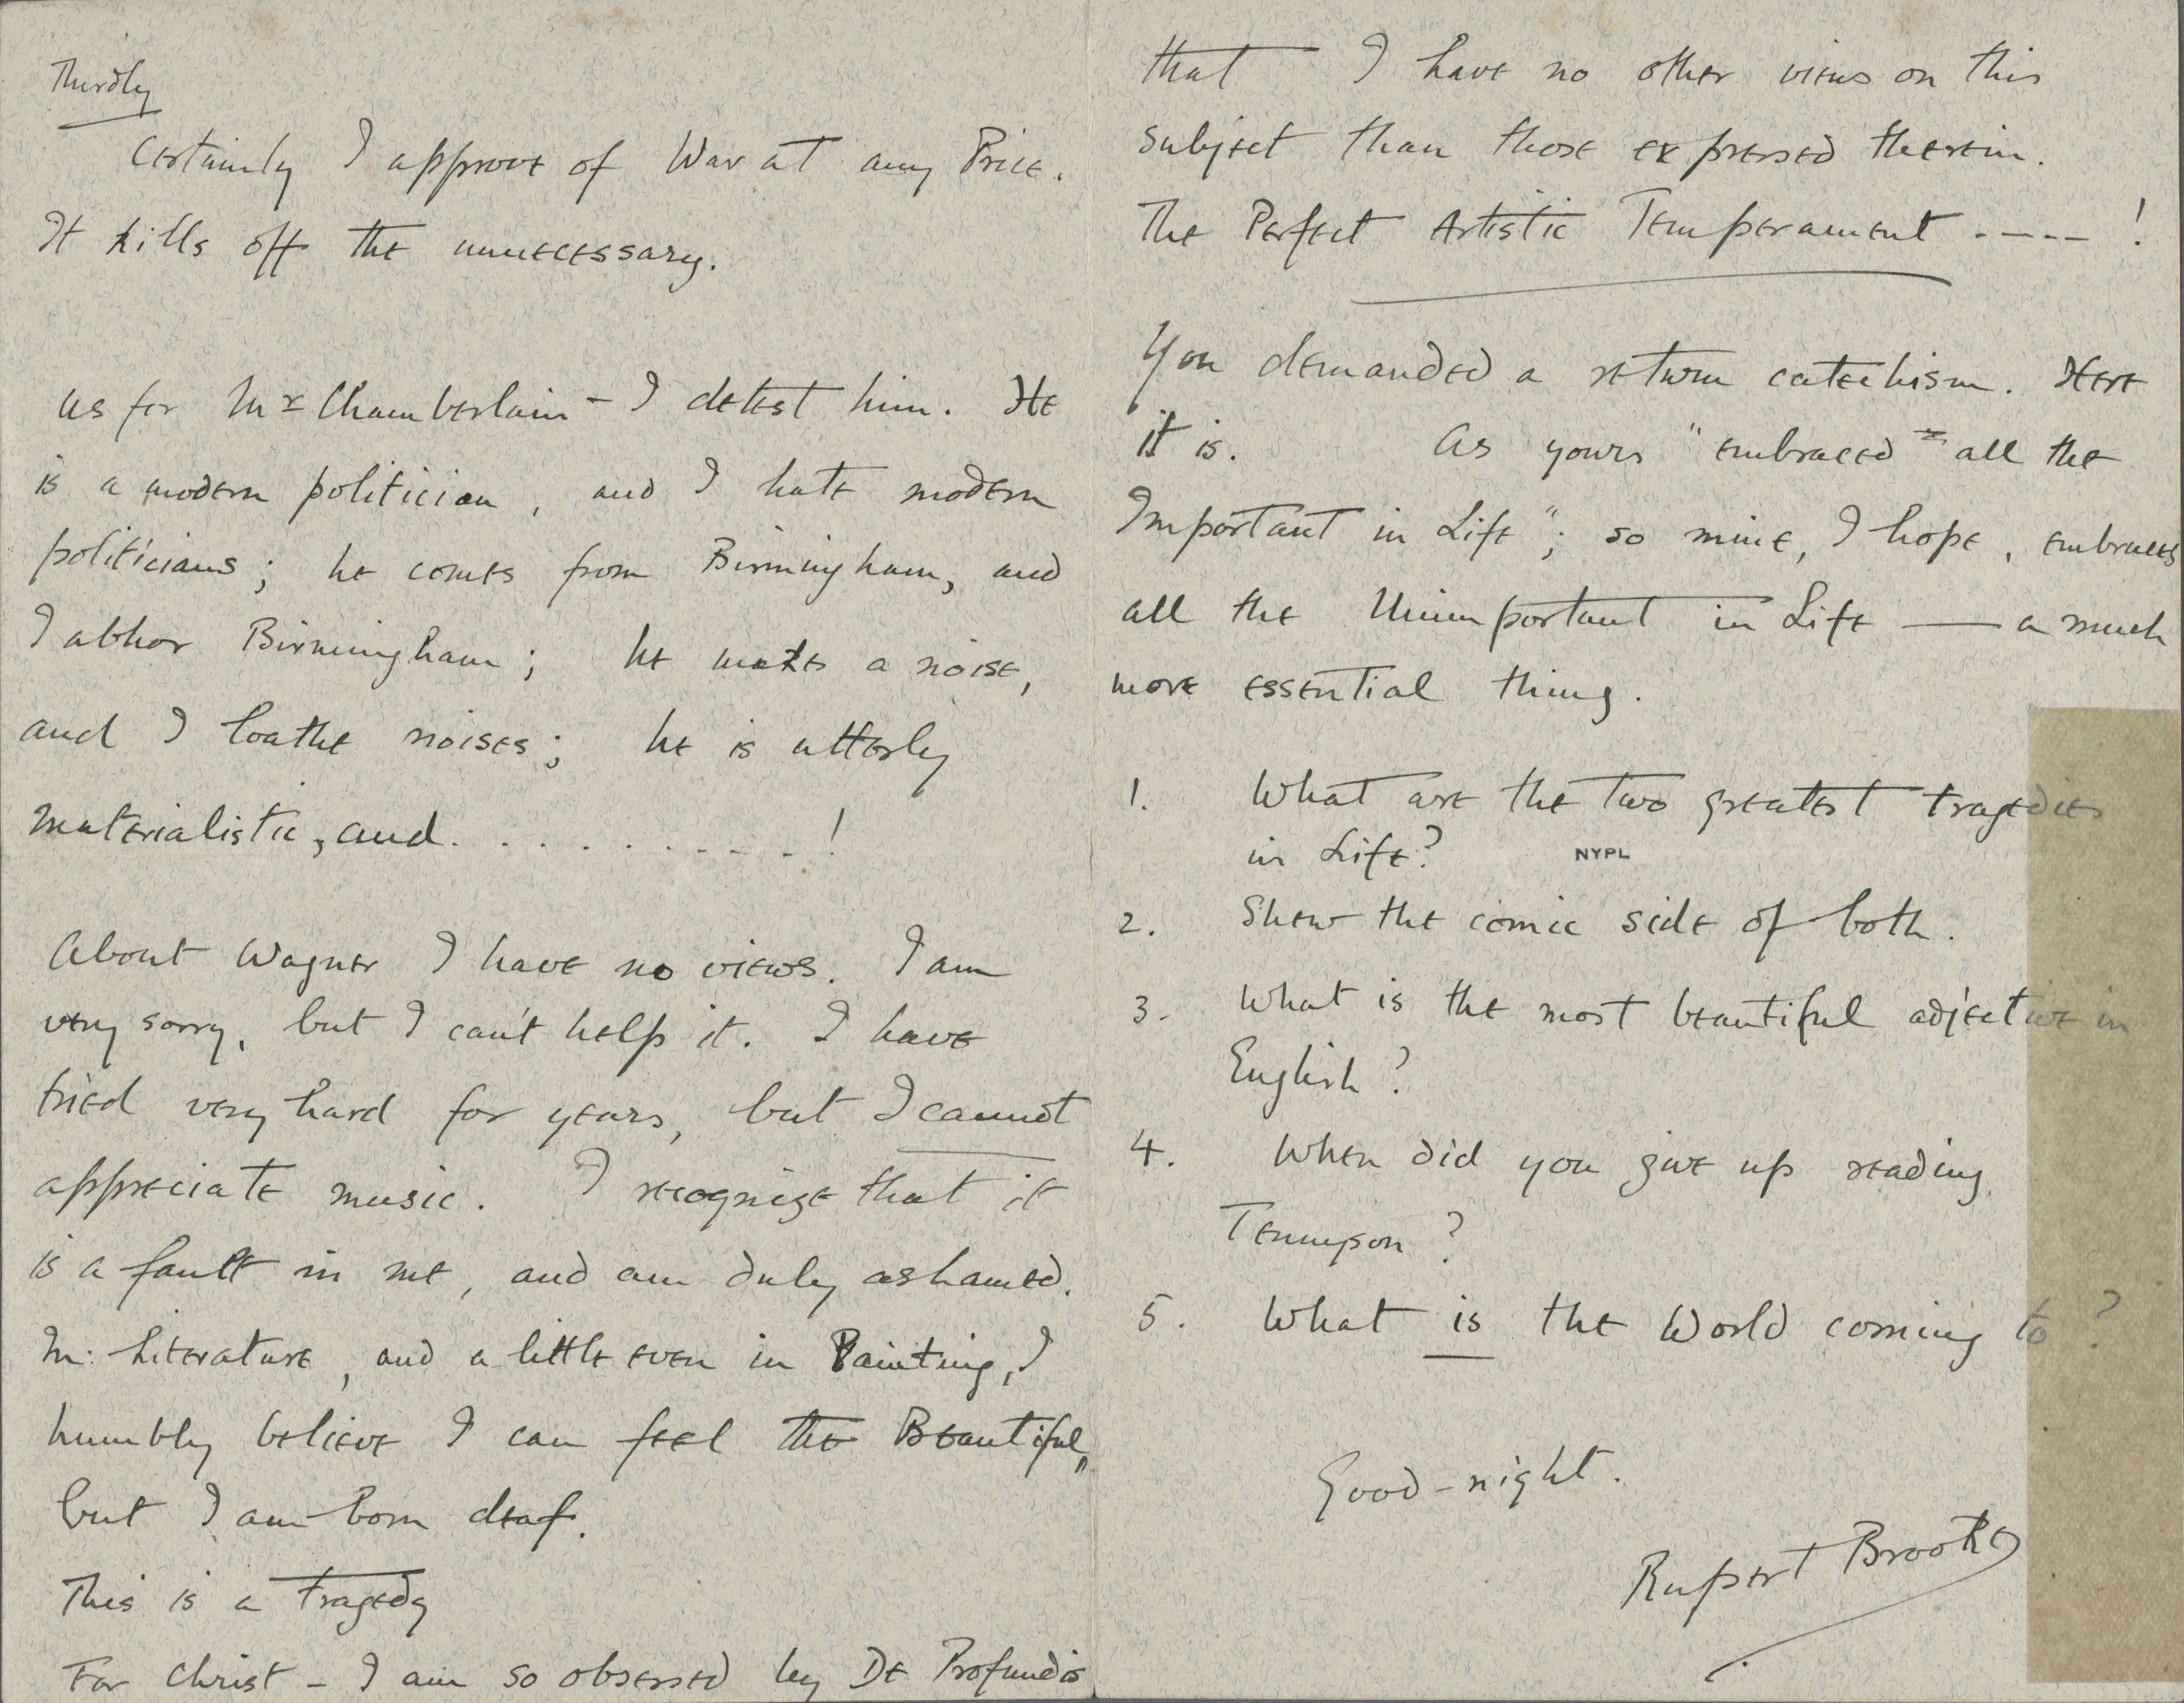 Thirdly
Certainly I approve of War at any Price.
It kills off the unnecessary.
As for Mr Chamberlain – I detest him. He
is a modern politician, and I hate modern
politicians; he comes from Birmingham, and
I abhor Birmingham; he makes a noise,
and I loathe noises; he is utterly
materialistic, and. . . . . . . . . . !
About Wagner I have no views. I am
very sorry, but I can't help it. I have
tried very hard for years, but I cannot
appreciate music. I recognize that it
is a fault in me, and am duly ashamed.
In Literature, and a little even in Painting, I
humbly believe I can feel the Beautiful,
but I am born deaf.
This is a Tragedy
For Christ – I am so obsessed by De Profundis
that I have no other views on this
subject than those expressed therein.
The Perfect Artistic Temperament ---- !
You demanded a return catechism. Here
it is. As yours "embraced all the
Important in Life"; so mine, I hope, embraces
all the Unimportant in Life — a much
more essential thing.
1. What are the two greatest tragedies
in Life?
NYPL
2. Shew the comic side of both.
3. What is the most beautiful adjective in
English?
4. When did you give up reading
Tennyson?
5. What is the World coming to?
Good-night.
Rupert Brooke